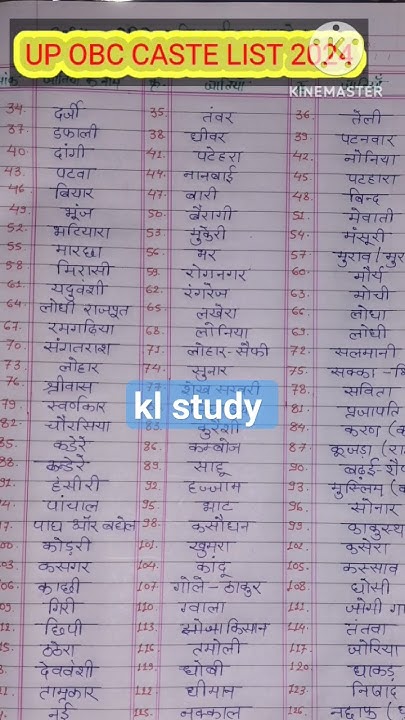 UP OBC CASTE LIST 2024
KINEMASTER
34. दर्जी 35. तंवर 36. तेली
37. डफाली 38. धीवर 39. पटनवार
40. दांगी 41. पटेहरा 42. नोनिया
43. पटवा 44. नानबाई 45. पटहारा
46. बियार 47. बारी 48. बिन्द
49. भूंज 50. बैरागी 51. मेवाती
52. भटियारा 53. मुकेरी 54. मंसूरी
55. मारछा 56. भर 57. मुराव /
58. मिरासी 59. रोगनगर 60. मौर्य
61. यदुवंशी 62. रंगरेज 63. मोची
64. लोधी राजपूत 65. लखेरा 66. लोधा
67. रमगढिया 68. लोनिया 69. लोधी
70. संगतराश 71. लोहार-सैफी 72. सलमानी
73. लोहार 74. सुनार 75. सक्का -
76. श्रीवास 77. 78. सविता
79. स्वर्णकार kl study 81. प्रजापति
82. चौरसिया 83. कुरैशी 84. करण
85. कंडेरे 86. कम्बोज 87. कूजड़ा
88. कन्डेरे 89. साहू 90. बढ़ई-
91. हंसीरी 92. हज्जाम 93. मुस्लिम
पांचाल 95. भाट 96. सोनार
पाघ और बघेल 98. कसौधन 99.
कोइरी 101. खुमरा 102. कसेरा
कसगर 104. कांदू 105. कस्साव
काछी 107. गोले-ठाकुर 108. घोसी
गिरी 110. ग्वाला 111. जोगी
छिपी 113. झोजा किसान 114. तंतवा
ठठेरा 116. तमोली 117. जोरिया
देववंशी 119. धोबी 120. धाकड़
तामृकार धीमान 123. निषाद
नई 125. नक्काल नद्दाफ